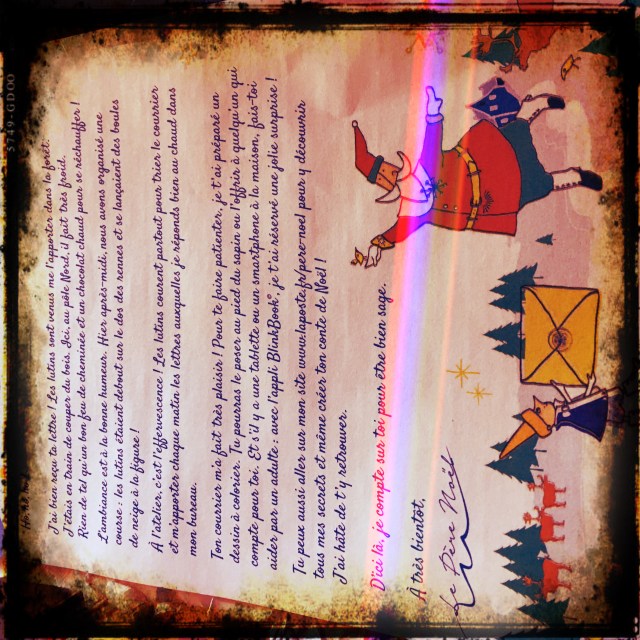 J'ai bien reçu ta lettre ! Les lutins sont venus me l'apporter dans la forêt.
J'étais en train de couper du bois. Ici, au pôle Nord, il fait très froid.
Rien de tel qu'un bon feu de cheminée et un chocolat chaud pour se réchauffer !
L'ambiance est à la bonne humeur. Hier après-midi, nous avons organisé une
course : les lutins étaient debout sur le dos des rennes et se lançaient des boules
de neige à la figure !
À l'atelier, c'est l'effervescence ! Les lutins courent partout pour trier le courrier
et m'apporter chaque matin les lettres auxquelles je réponds bien au chaud dans
mon bureau.
Ton courrier m'a fait très plaisir ! Pour te faire patienter, je t'ai préparé un
dessin à colorier. Tu pourras le poser au pied du sapin ou l'offrir à quelqu'un qui
compte pour toi. Et s'il y a une tablette ou un smartphone à la maison, fais-toi
aider par un adulte : avec l'appli BlinkBook, je t'ai réservé une jolie surprise !
Tu peux aussi aller sur mon site www.laposte.fr/pere-noel pour y découvrir
tous mes secrets et même créer ton conte de Noël !
J'ai hâte de t'y retrouver.
D'ici là, je compte sur toi pour être bien sage.
À très bientôt,
Le Père Noël